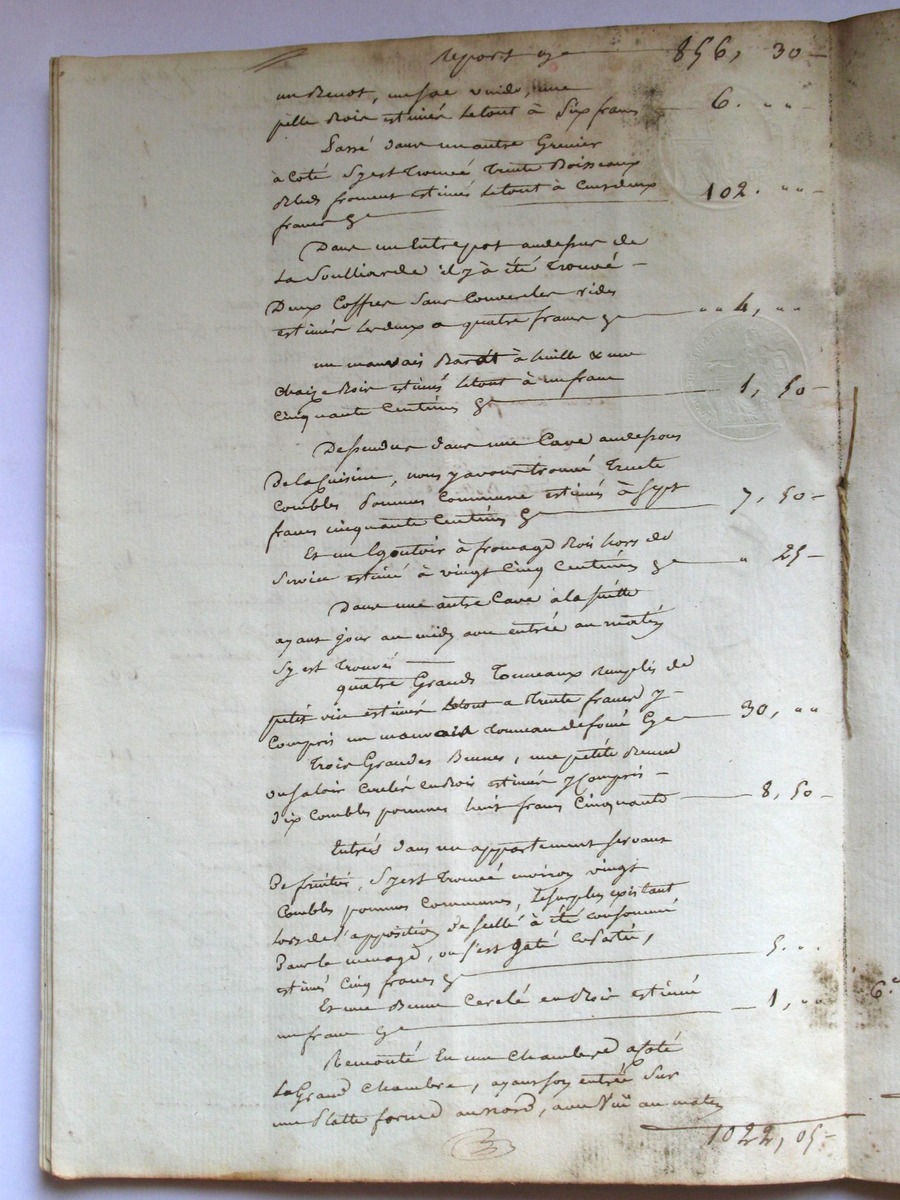 report cy 856, 30
un Benot, un sac vuide, une
pelle Bois estimés letout à Six francs 6. " "
Passé dans un autre Grenier
à coté Syest trouvé trente Boisseaux
Bleds froment estimés letout à Cent deux
francs cy 102. " "
Dans un Entrepot audessus de
La Soulliarde il y à été trouvé
Deux Coffres Sans Couvercles vides
estimés lesdeux a quatre francs cy " " 4, " "
un mauvais Barat à huille & une
chaize Bois estimés letout à un franc
Cinquante Centimes cy 1, 50
Dessendus dans une Cave audessous
Delacuisine, nous y avons trouvé trente
Combles Pommes Commune estimés à Sept
francs cinquante Centimes Cy 7, 50
Et un Egoutoir à fromage Bois hors de
Service estimé à vingt Cinq Centimes cy " 25
Dans une autre Cave à la suitte
ayant jour au midy avec entrée au matin
Sy est trouvés
quatre Grands Tonneaux remplis de
petit vin estimés letout a trente francs y
Compris un mauvais Tonneau defoncé Cy 30, " "
Trois Grandes Bennes, une petite Benne
ou saloir Cerclé en Bois estimés y Compris
dix Combles pommes huit francs Cinquante 8, 50
Entrés dans un appartement servant
De fruitier, Syest trouvé environ vingt
Combles pommes Communes, le surplus existant
lors de l'apposition de scellé à été consommé
Dans le menage, ou s'est gaté en partie,
estimés Cinq francs cy 5. " "
Et une Benne Cerclé en Bois estimée
un franc cy 1, " "
Remonté En une chambre à coté
La Grand chambre, ayant son entrée Sur
une Platte forme au nord, avec Vüe au matin
1022, 05